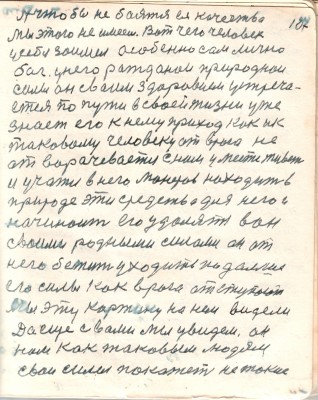 А чтобы не боятся ея качества 187
Мы этого не имеем. Вот чего человек
у себя заимел особенно сам лично
был. у него ражданой природной
силы он своим здоровием устреча-
ется по пути в своей жизни уже
знает его к нему приход как к
таковому человеку от врага не
отворачевается с ним умести живет
и учится в него может находить в
природе эти средства для него и
начинает его удалять вон
своими родными силами он от
него бежит уходить подальше
его силы как врага отступают
Мы эту картину на нем видели
Да еще с вами мы увидем, он
нам как таковым людям
свои силы покажет не такие